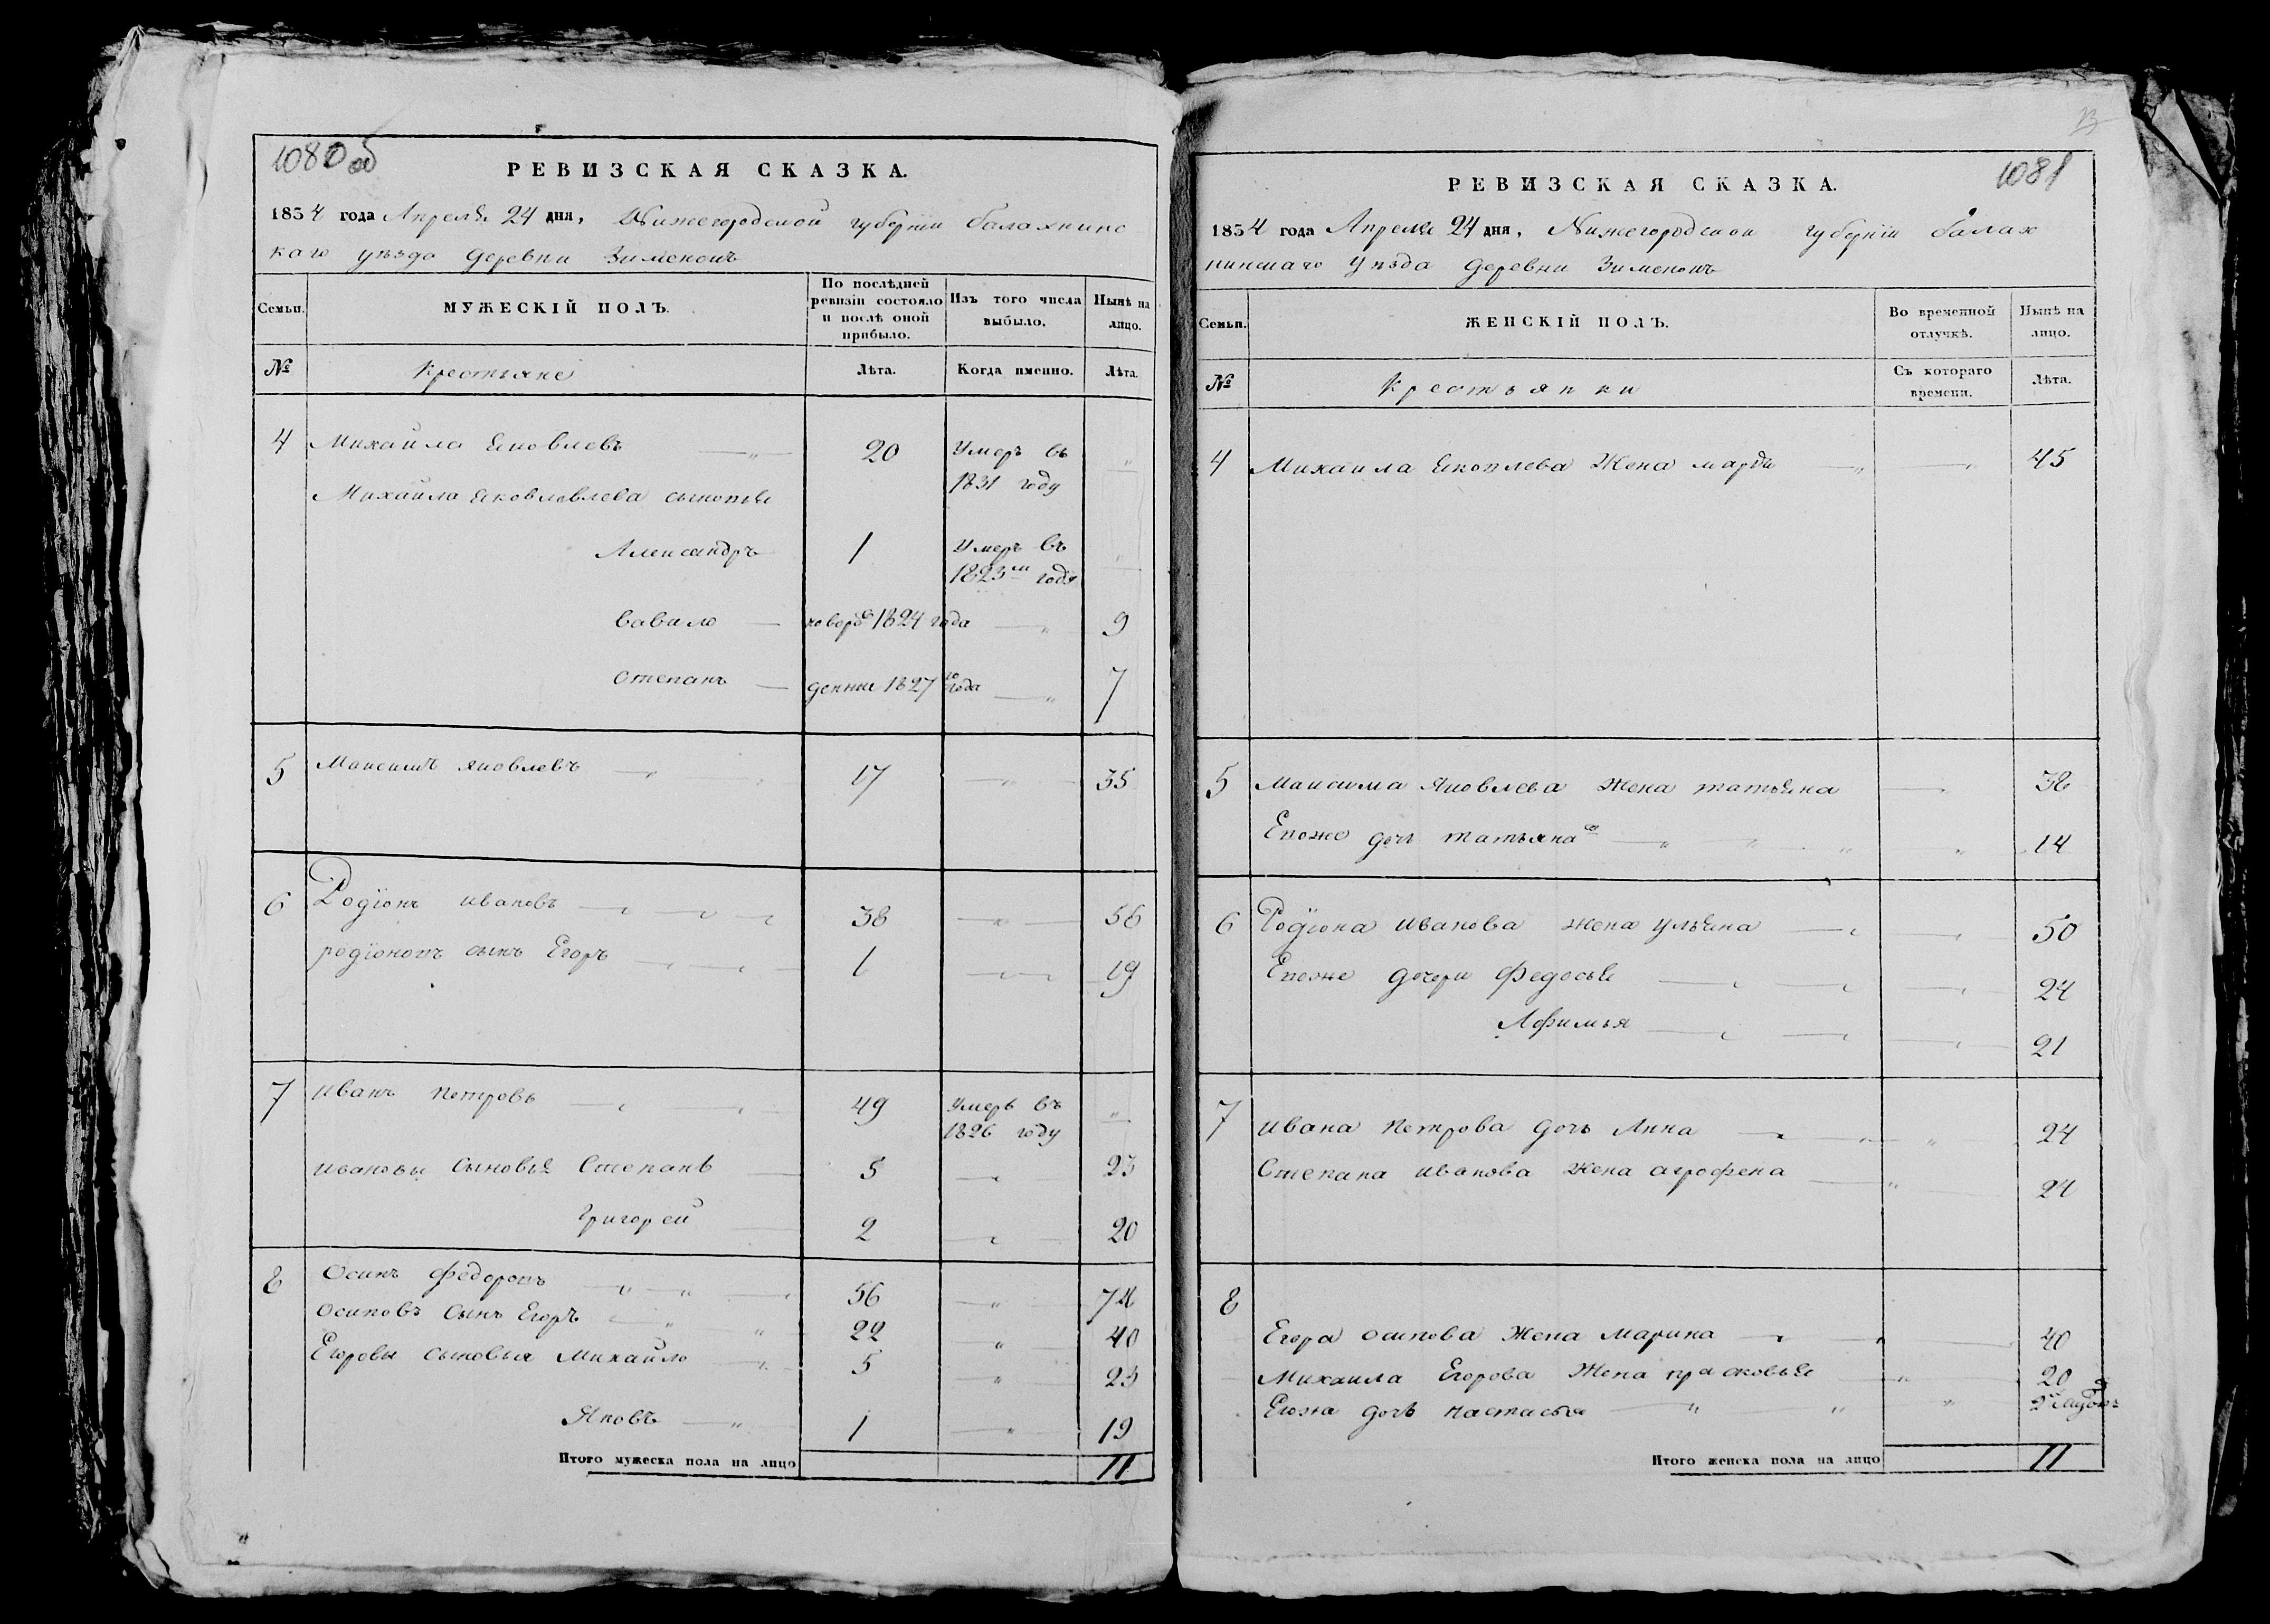 1080 об
РЕВИЗСКАЯ СКАЗКА.
1834 года Апреля 24 дня, Нижегородской губернии балахнинс
каго уезда деревни Зименокъ
Семьи.
МУЖЕСКІЙ ПОЛЪ.
По послѣдней ревизіи состояло и послѣ оной прибыло.
Изъ того числа выбыло.
Нынѣ на лицо.
№
Крестьяне
Лѣта.
Когда именно.
Лѣта.
4 Михайла Яковлевъ 20 Умеръ въ
1831 году
Михайла Яковловлева сыновья
Александръ 1 Умеръ въ
1823м годя
вавило новорѳ 1824 года 9
степанъ денны 1827го года 7
5 Максимъ яковлевъ 17 35
6 Родіонъ ивановъ 38 56
родіоновъ сынъ Егоръ 1 19
7 иванъ петровъ 49 Умеръ въ
1826 году
ивановы сыновья Степанъ 5 23
Григорей 2 20
8 Осипъ федоровъ 56 74
осиповъ сынъ Егоръ 22 40
Егоровы сыновья михайло 5 23
Яковъ 1 19
Итого мужеска пола на лицо 11
1081
РЕВИЗСКАЯ СКАЗКА.
1834 года Апреля 24 дня, Нижегородской губерніи балах
нинскаго уезда деревни Зименокъ
Семьи.
ЖЕНСКІЙ ПОЛЪ.
Во временной отлучкѣ.
Нынѣ на лицо.
№
Крестьянки
Съ котораго времени.
Лѣта.
4 Михаила Яковлева Жена марфа 45
5 Максима Яковлева жена татьяна 38
Евоже дочь татьяна 14
6 Родіона иванова жена ульяна 50
Евоже дочери федосья 24
Афимья 21
7 ивана петрова дочь Анна 24
Степана иванова жена аграфена 24
8
Егора осипова Жена марина 40
Михаила Егорова Жена прасковья 20
Евожа дочь настасья
Итого женска пола на лицо 11